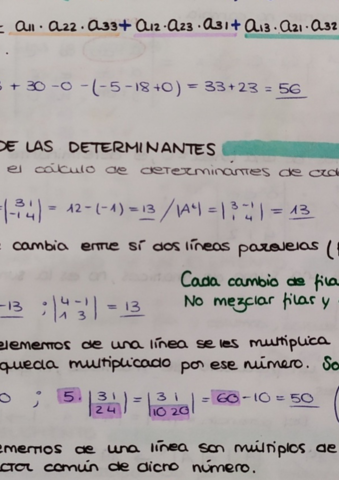 = a₁₁ · a₂₂ · a₃₃ + a₁₂ · a₂₃ · a₃₁ + a₁₃ · a₂₁ · a₃₂
+ 30 - 0 - (-5 - 18 + 0) = 33 + 23 = 56
DE LAS DETERMINANTES
el cálculo de determinantes de
= |3 1; -1 4| = 12 - (-1) = 13 / |Aᵗ| = |3 -1; 1 4| = 13
cambia entre sí dos líneas paralelas (
Cada cambio de fila
No mezclar filas y
-13 ; |4 -1; 1 3| = 13
elementos de una línea se les multiplica
queda multiplicado por ese número. So
0 ; 5 · |3 1; 2 4| = |3 1; 10 20| = 60 - 10 = 50
ementos de una línea son múltiplos de
ctor común de dicho número.